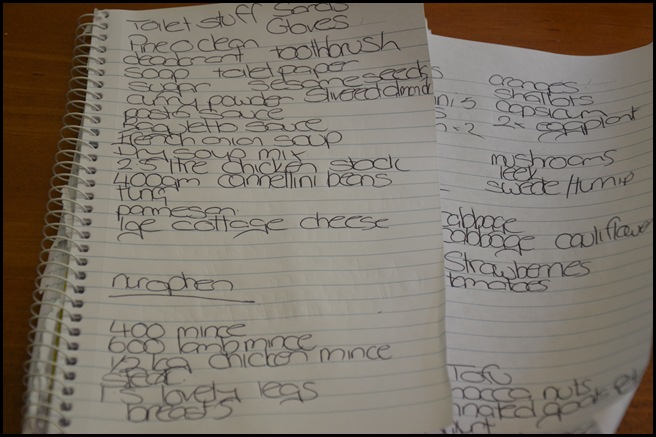 Toilet stuff Cards
Gloves
Pine o clean
deodorant toothbrush
soap toilet paper
sugar sesame seeds
curry powder slivered almonds
pasta sauce
spaghetti sauce
french onion soup
soup mix
2.5 litre chicken stock
400gm cannellini beans
tuna
parmesan
lge cottage cheese
nurophen
400 mince
600 lamb mince
1/2 kg chicken mince
steak
legs
breasts
oranges
shallots
capsicum
2x eggplant
mushrooms
leek
swede/turnip
cabbage
cabbage cauliflower
strawberries
tomatoes
Tofu
nuts